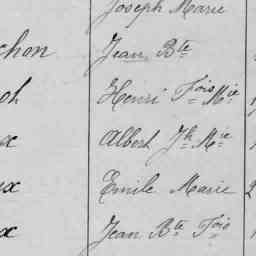 Joseph Marie
chon Jean Bte
oh Henri Fois Mie
x Albert Jh Mie
ux Emile Marie 2
x Jean Bte Fois